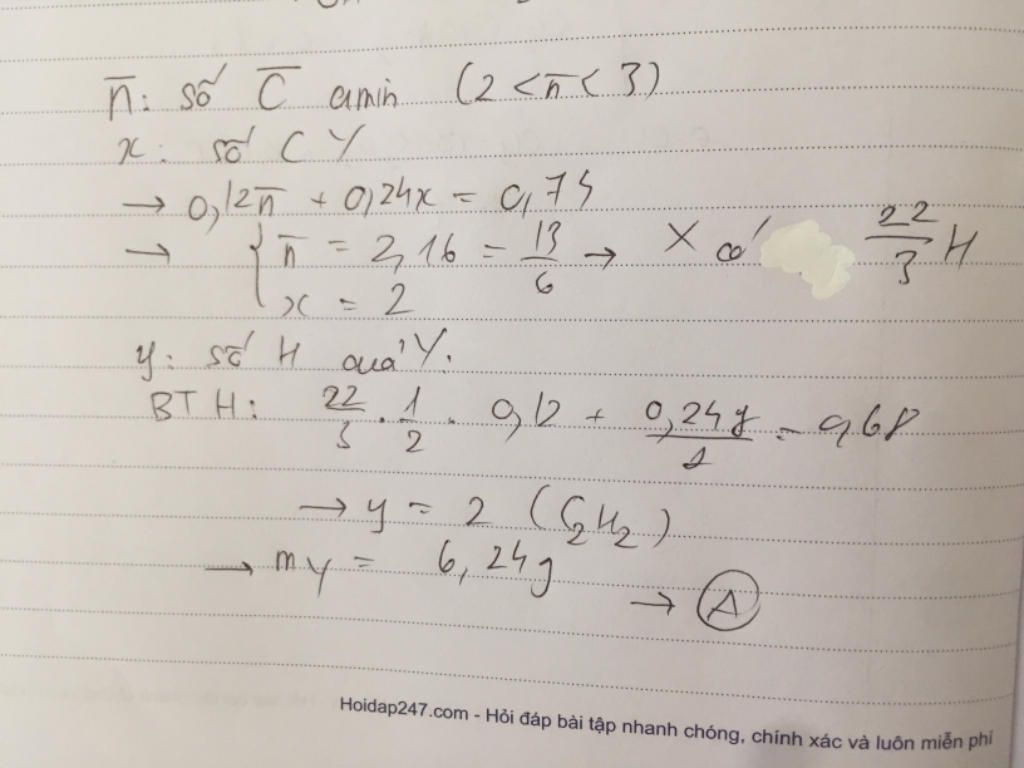 n̄: số C̄ amin (2 < n̄ < 3)
x: số C Y
→ 0,12n̄ + 0,24x = 0,74
→ { n̄ = 2,16 = 13/6 → X có 22/3 H
x = 2
y: số H của Y.
BT H: 22/3 . 1/2 . 0,12 + 0,24y/2 = 0,68
→ y = 2 (C₂H₂)
→ mY = 6,24g
→ A
Hoidap247.com - Hỏi đáp bài tập nhanh chóng, chính xác và luôn miễn phí